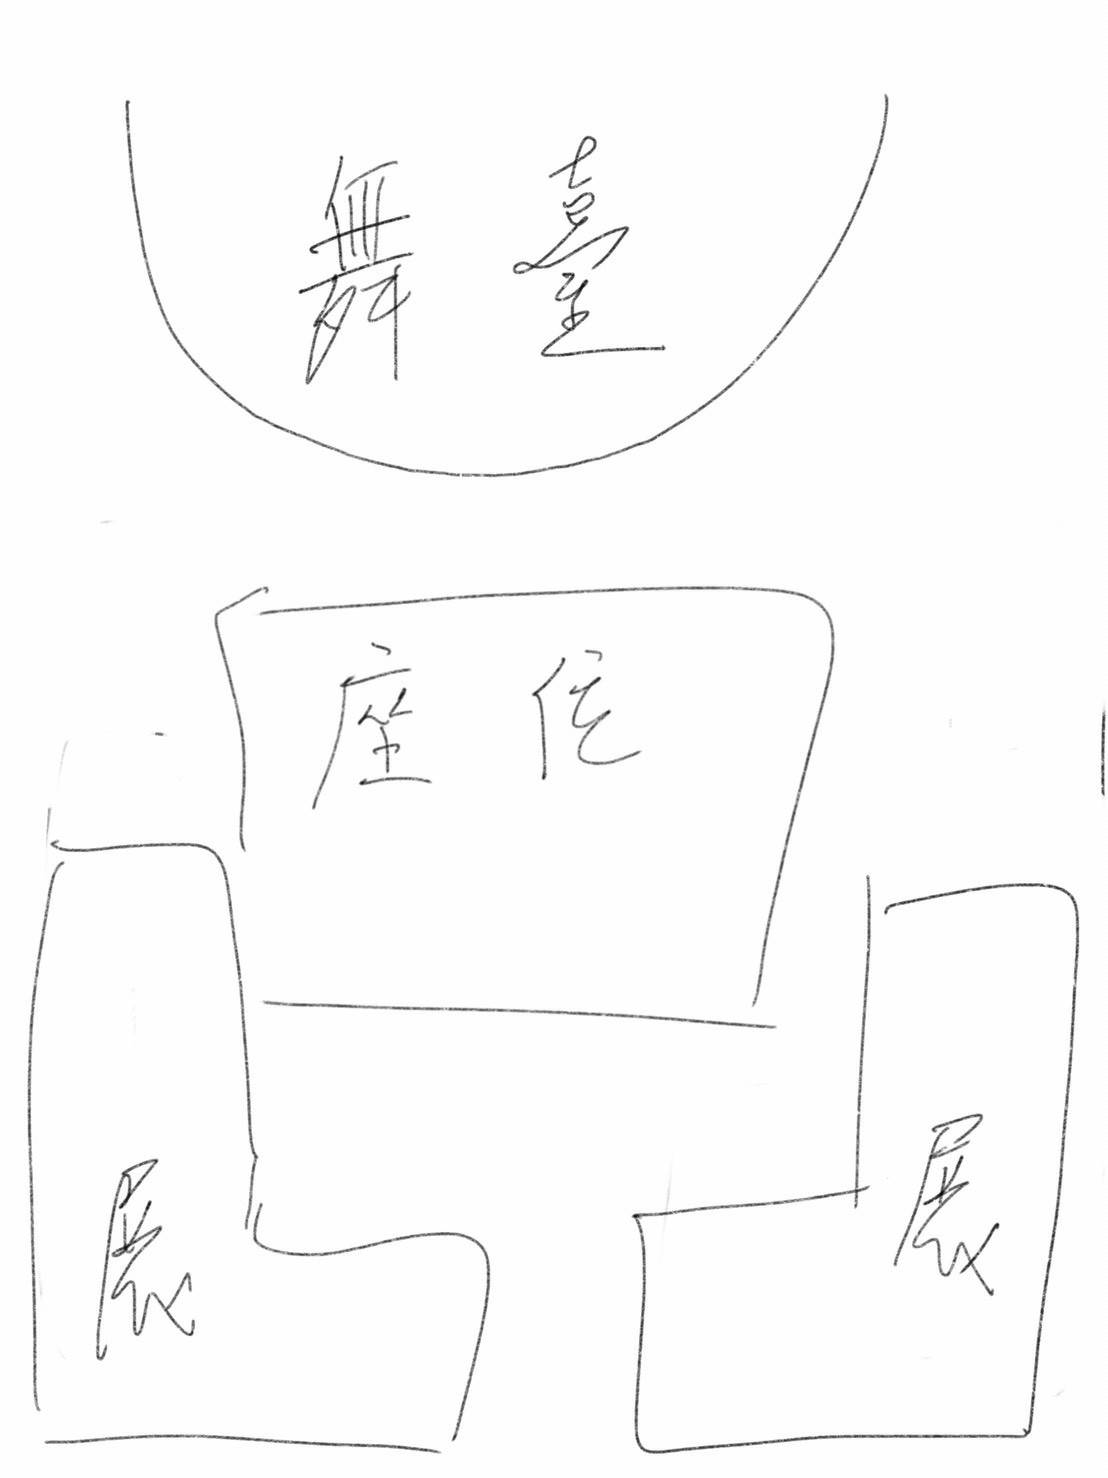 舞臺
座位
展
展